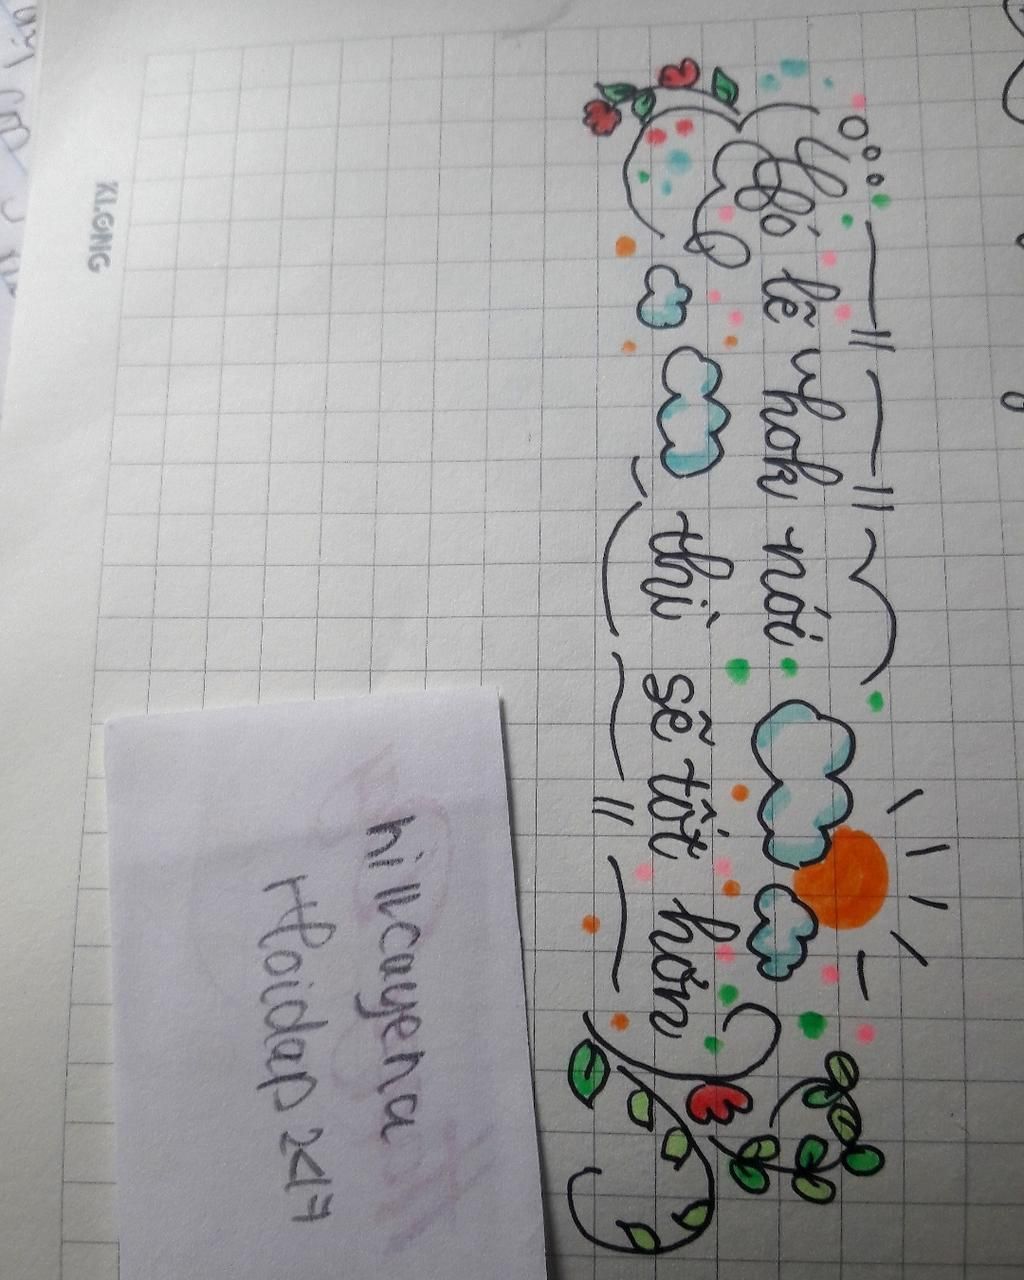 Có lẽ khok nói
thì sẽ tốt hơn
hillcayena
Hoidap 247
KLONG